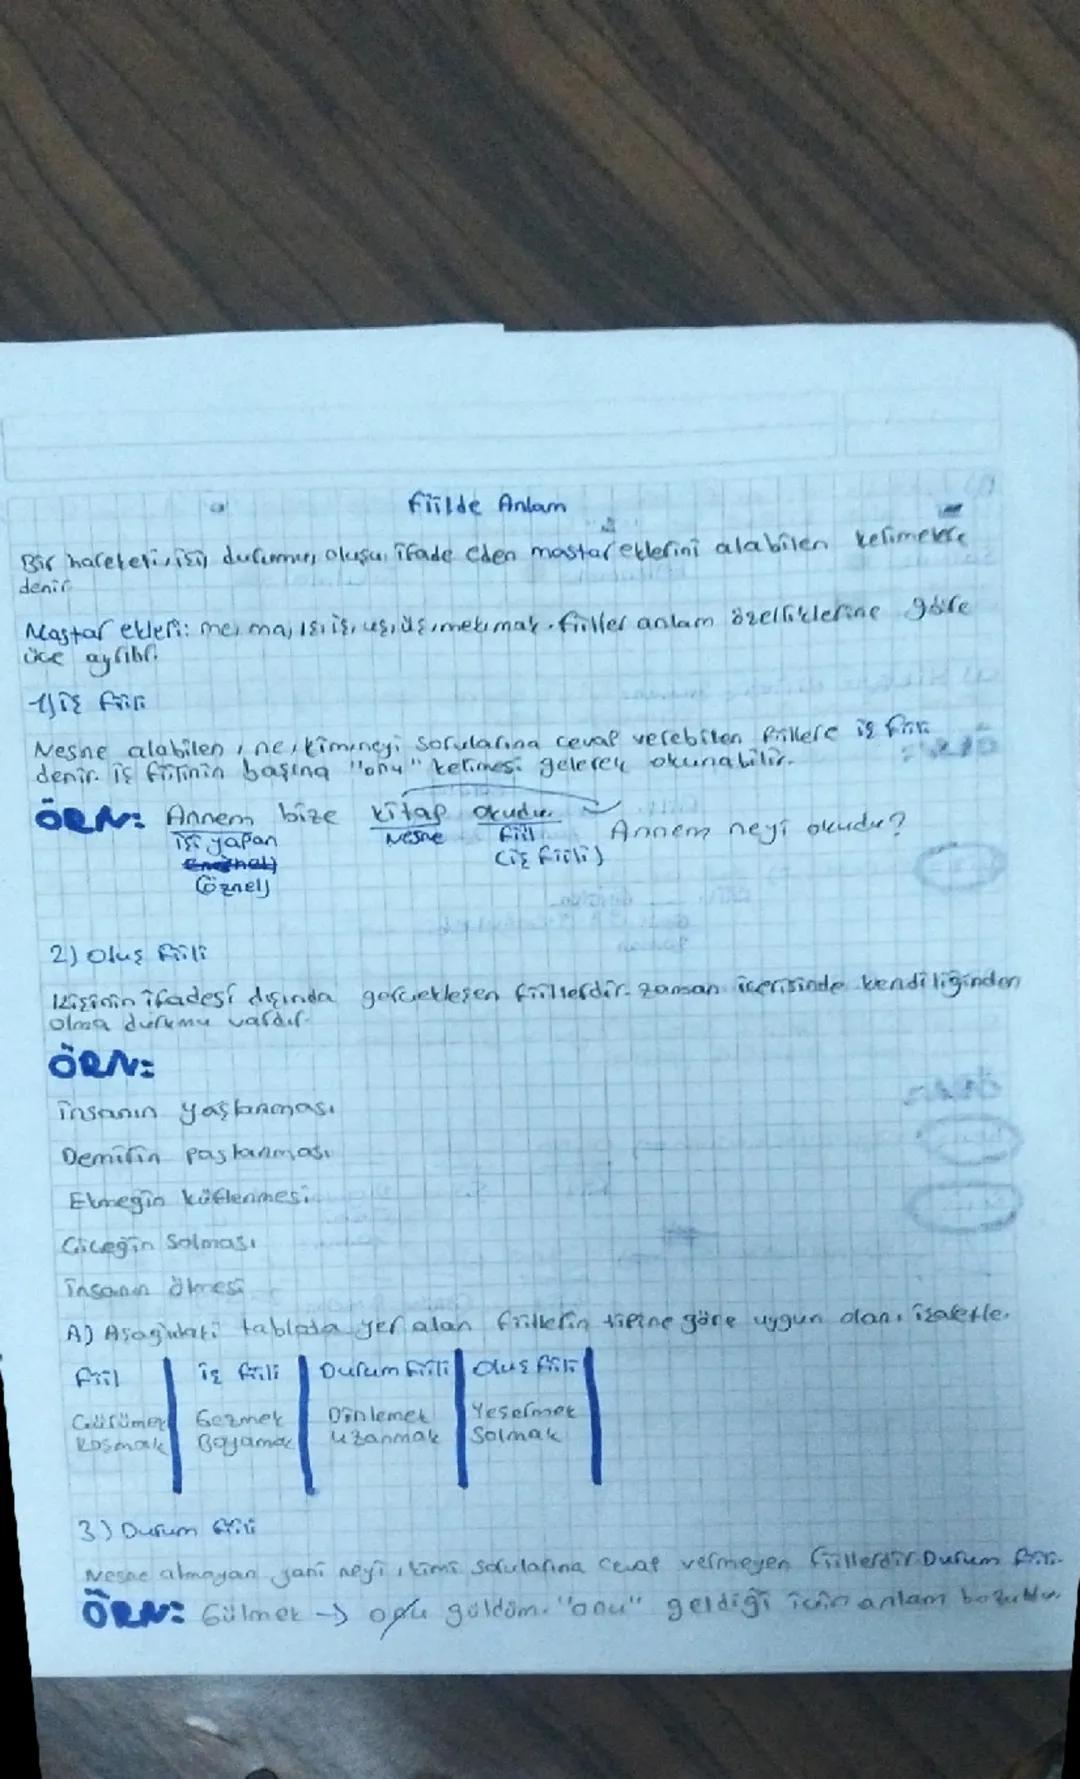 Fiilde Anlam
Bir hareketi, işi, durumu, oluşu ifade eden mastar eklerini alabilen kelimelere
denir
Mastar ekleri: me, ma, ış, iş, uş, üş, mek, mak. fiiller anlam özelliklerine göre
üçe ayrılır.
1) iş fiili
Nesne alabilen, ne, kimi, neyi sorularına cevap verebilen fiillere iş fiili
denir. iş fiilinin başına "onu" kelimesi gelerek okunabilir.
ÖRN: Annem bize kitap okudu. Annem neyi okudu?
işi yapan Nesne fiil
(iş fiili)
(öznel)
2) Oluş fiili
Kişinin ifadesi dışında gerçekleşen fiillerdir. zaman içerisinde kendiliğinden
olma durumu vardır.
ÖRN:
insanın yaşlanması
Demirin paslanması
Ekmeğin küflenmesi
Çiçeğin Solması
insanın ölmesi
A) Aşağıdaki tabloda yer alan fiillerin tipine göre uygun olanı işaretle.
fiil iş fiili Durum fiili Oluş fiili
Çürümek Gezmek Dinlemek Yeşermek
Koşmak Boyamak uzanmak Solmak
3) Durum fiili
Nesne almayan yani neyi, kimi sorularına cevap vermeyen fiillerdir. Durum fiili.
ÖRN: Gülmek → onu güldüm. "onu" geldiği için anlam bozuldu.